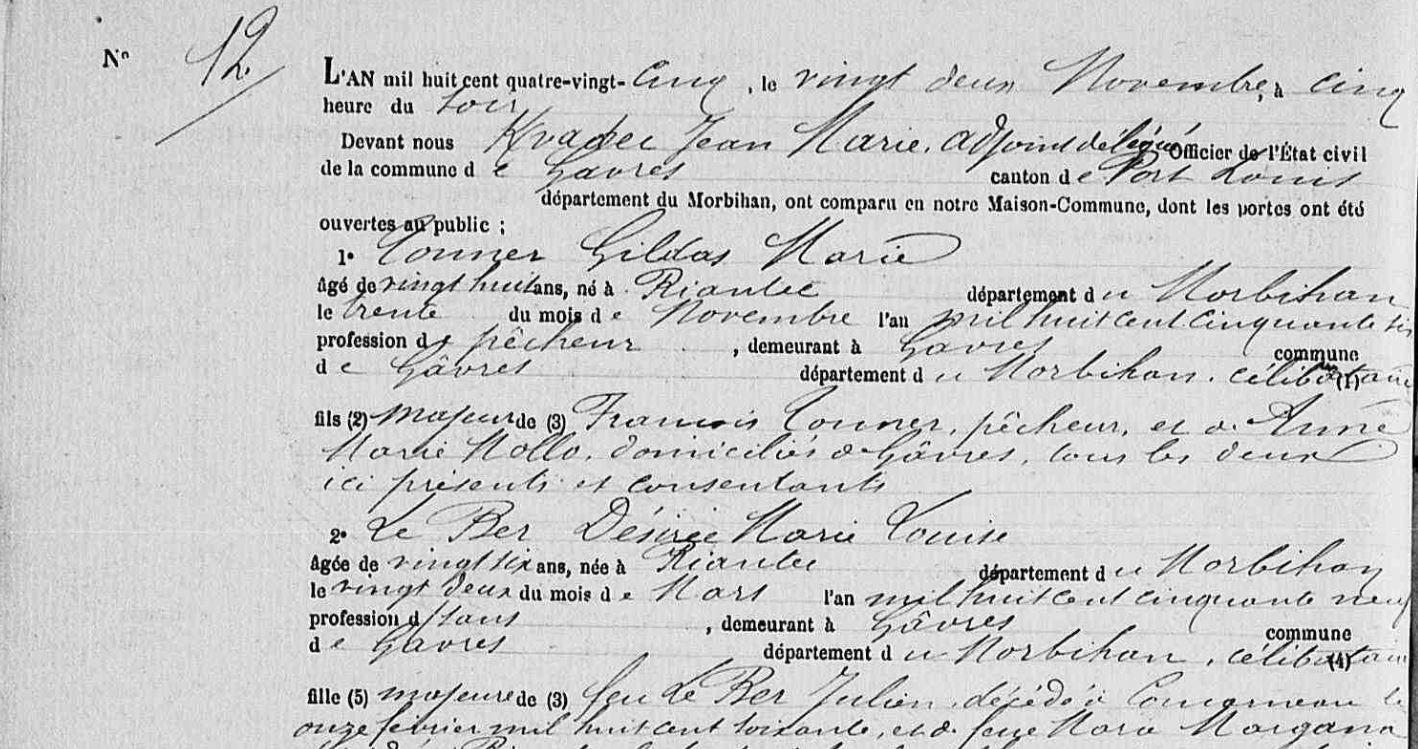 N° 12
L'AN mil huit cent quatre-vingt-Cinq, le vingt deux Novembre, à Cinq
heure du Soir
Devant nous Kvadec Jean Marie, adjoint délégué Officier de l'État civil
de la commune de Gavres canton de Port Louis
département du Morbihan, ont comparu en notre Maison-Commune, dont les portes ont été
ouvertes au public ;
1° Tonner Gildas Marie
âgé de vingt huit ans, né à Riantec département du Morbihan
le trente du mois de Novembre l'an mil huit cent cinquante six
profession de pêcheur, demeurant à Gavres commune
de Gâvres département du Morbihan, célibataire (1)
fils (2) majeur de (3) François Tonner, pêcheur, et de Anne
Marie Mollo, domiciliés à Gâvres, tous les deux
ici présents et consentants
2° Le Ber Désirée Marie Louise
âgée de vingt six ans, née à Riantec département du Morbihan
le vingt deux du mois de Mars l'an mil huit cent cinquante neuf
profession d sans, demeurant à Gâvres commune
de Gavres département du Morbihan, célibataire (4)
fille (5) majeure de (3) feu Le Ber Julien, décédé à Concarneau le
onze février mil huit cent soixante, et de feue Marie Morgana